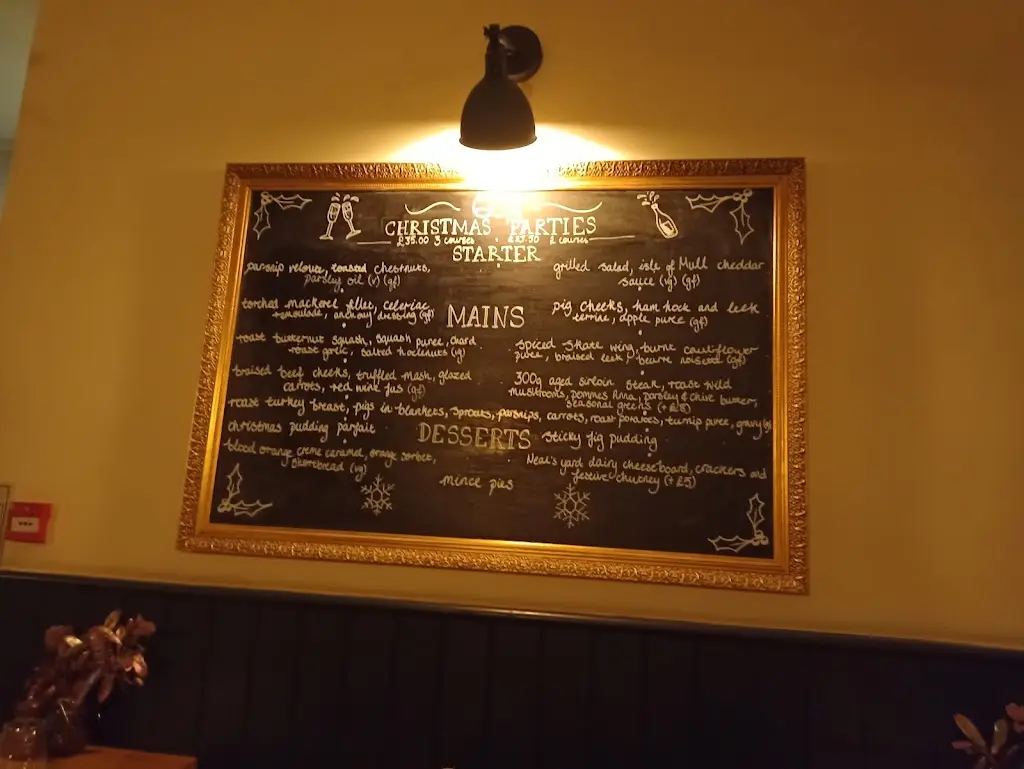 CHRISTMAS PARTIES
£35.00 3 courses • £27.50 2 courses
STARTER
parsnip veloute, toasted chestnuts,
parsley oil (v) (gf)
grilled salad, isle of Mull cheddar
sauce (vg) (gf)
torched mackerel fillet, celeriac
remoulade, anchovy dressing (gf)
pig cheeks, ham hock and leek
terrine, apple puree (gf)
MAINS
roast butternut squash, squash puree, chard
roast garlic, salted hazelnuts (vg)
spiced skate wing, burnt cauliflower
puree, braised leek, beurre noisette (gf)
braised beef cheeks, truffled mash, glazed
carrots, red wine jus (gf)
300g aged sirloin steak, roast wild
mushrooms, pommes Anna, parsley & chive butter,
seasonal greens (+£8)
roast turkey breast, pigs in blankets, sprouts, parsnips, carrots, roast potatoes, turnip puree, gravy
DESSERTS
christmas pudding parfait
sticky fig pudding
blood orange creme caramel, orange sorbet,
shortbread (vg)
Neal's yard dairy cheeseboard, crackers and
festive chutney (+£5)
mince pies